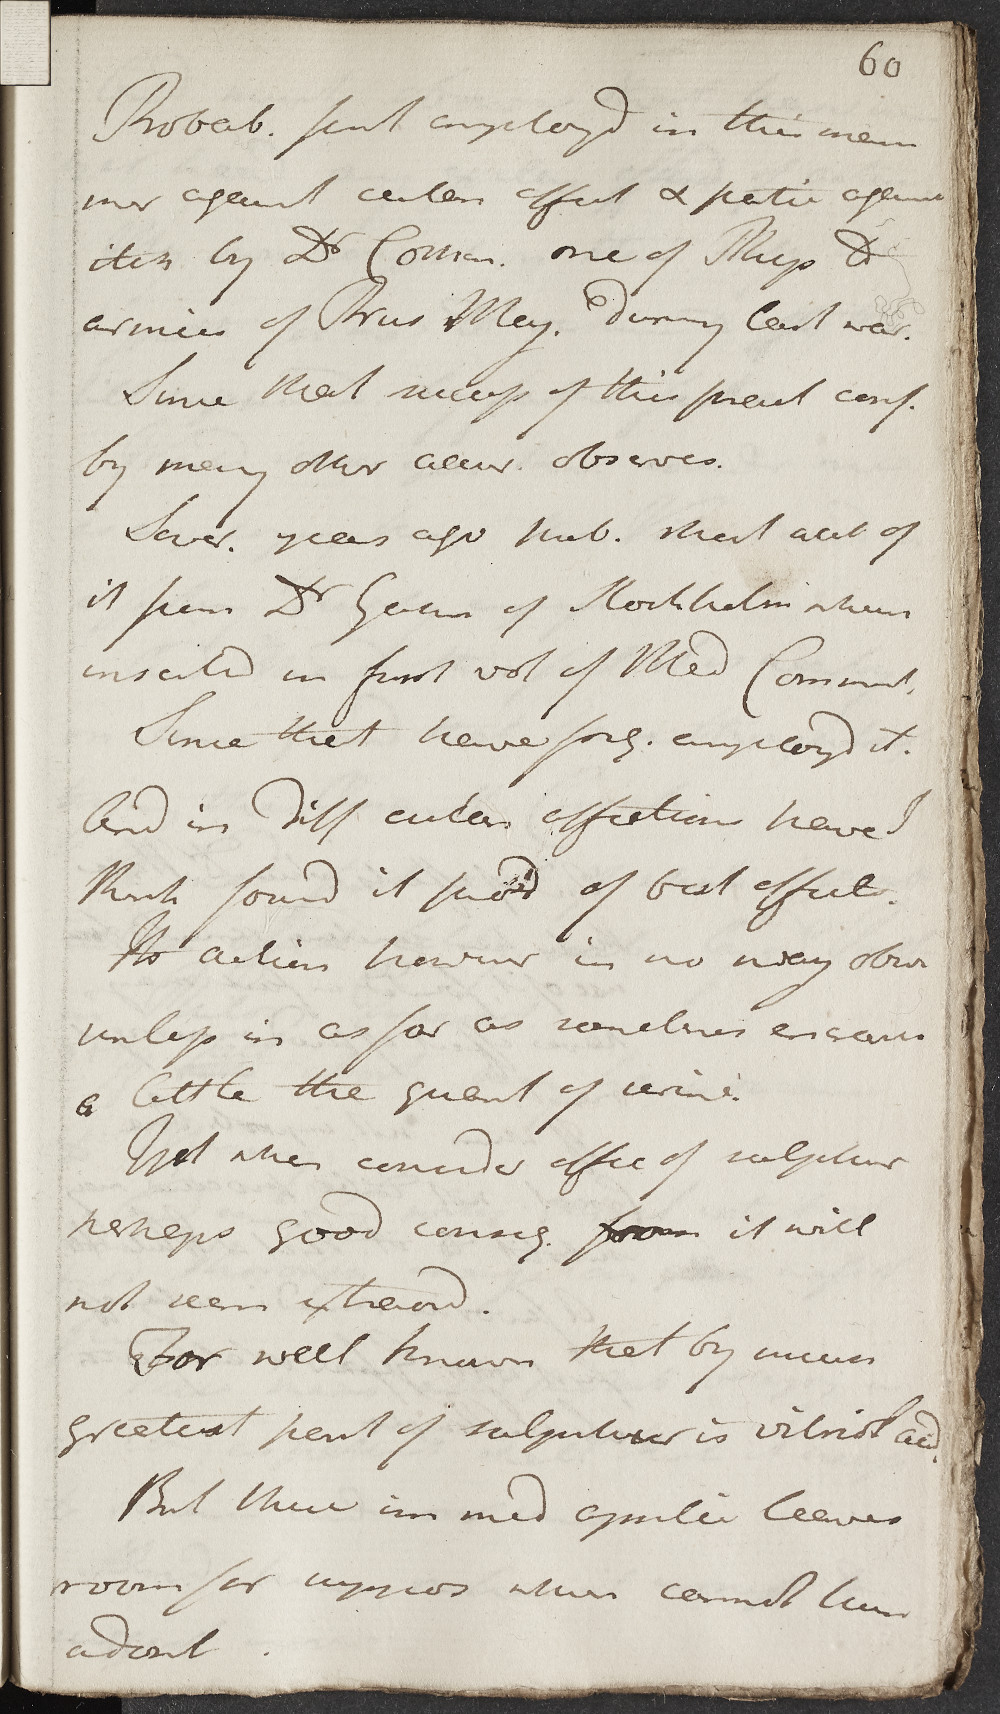 60
Probab. first employd in this man
ner against cutan affect & partic against
itch by Dr Cothen. one of Phys to
armies of Prus May. during last war.
Since that success of this pract conf.
by many other accur. observes.
Sever. years ago pub. short acct of
it from Dr Gahn of Stockholm when
inserted in first vol of Med Comment.
Since that have freq. employd it.
And in diff cutan affections have I
think found it prod of best effect.
Its action however is no way obvi
unless in as far as sometimes encreas
a little the quant of urine.
Yet when consider effec of sulphur
perhaps good conseq. from it will
not seem extraord.
For well known that by much
greatest part of sulphur is vitriol acid.
But there in med
leaves
room for suppos when cannot hun
adont.